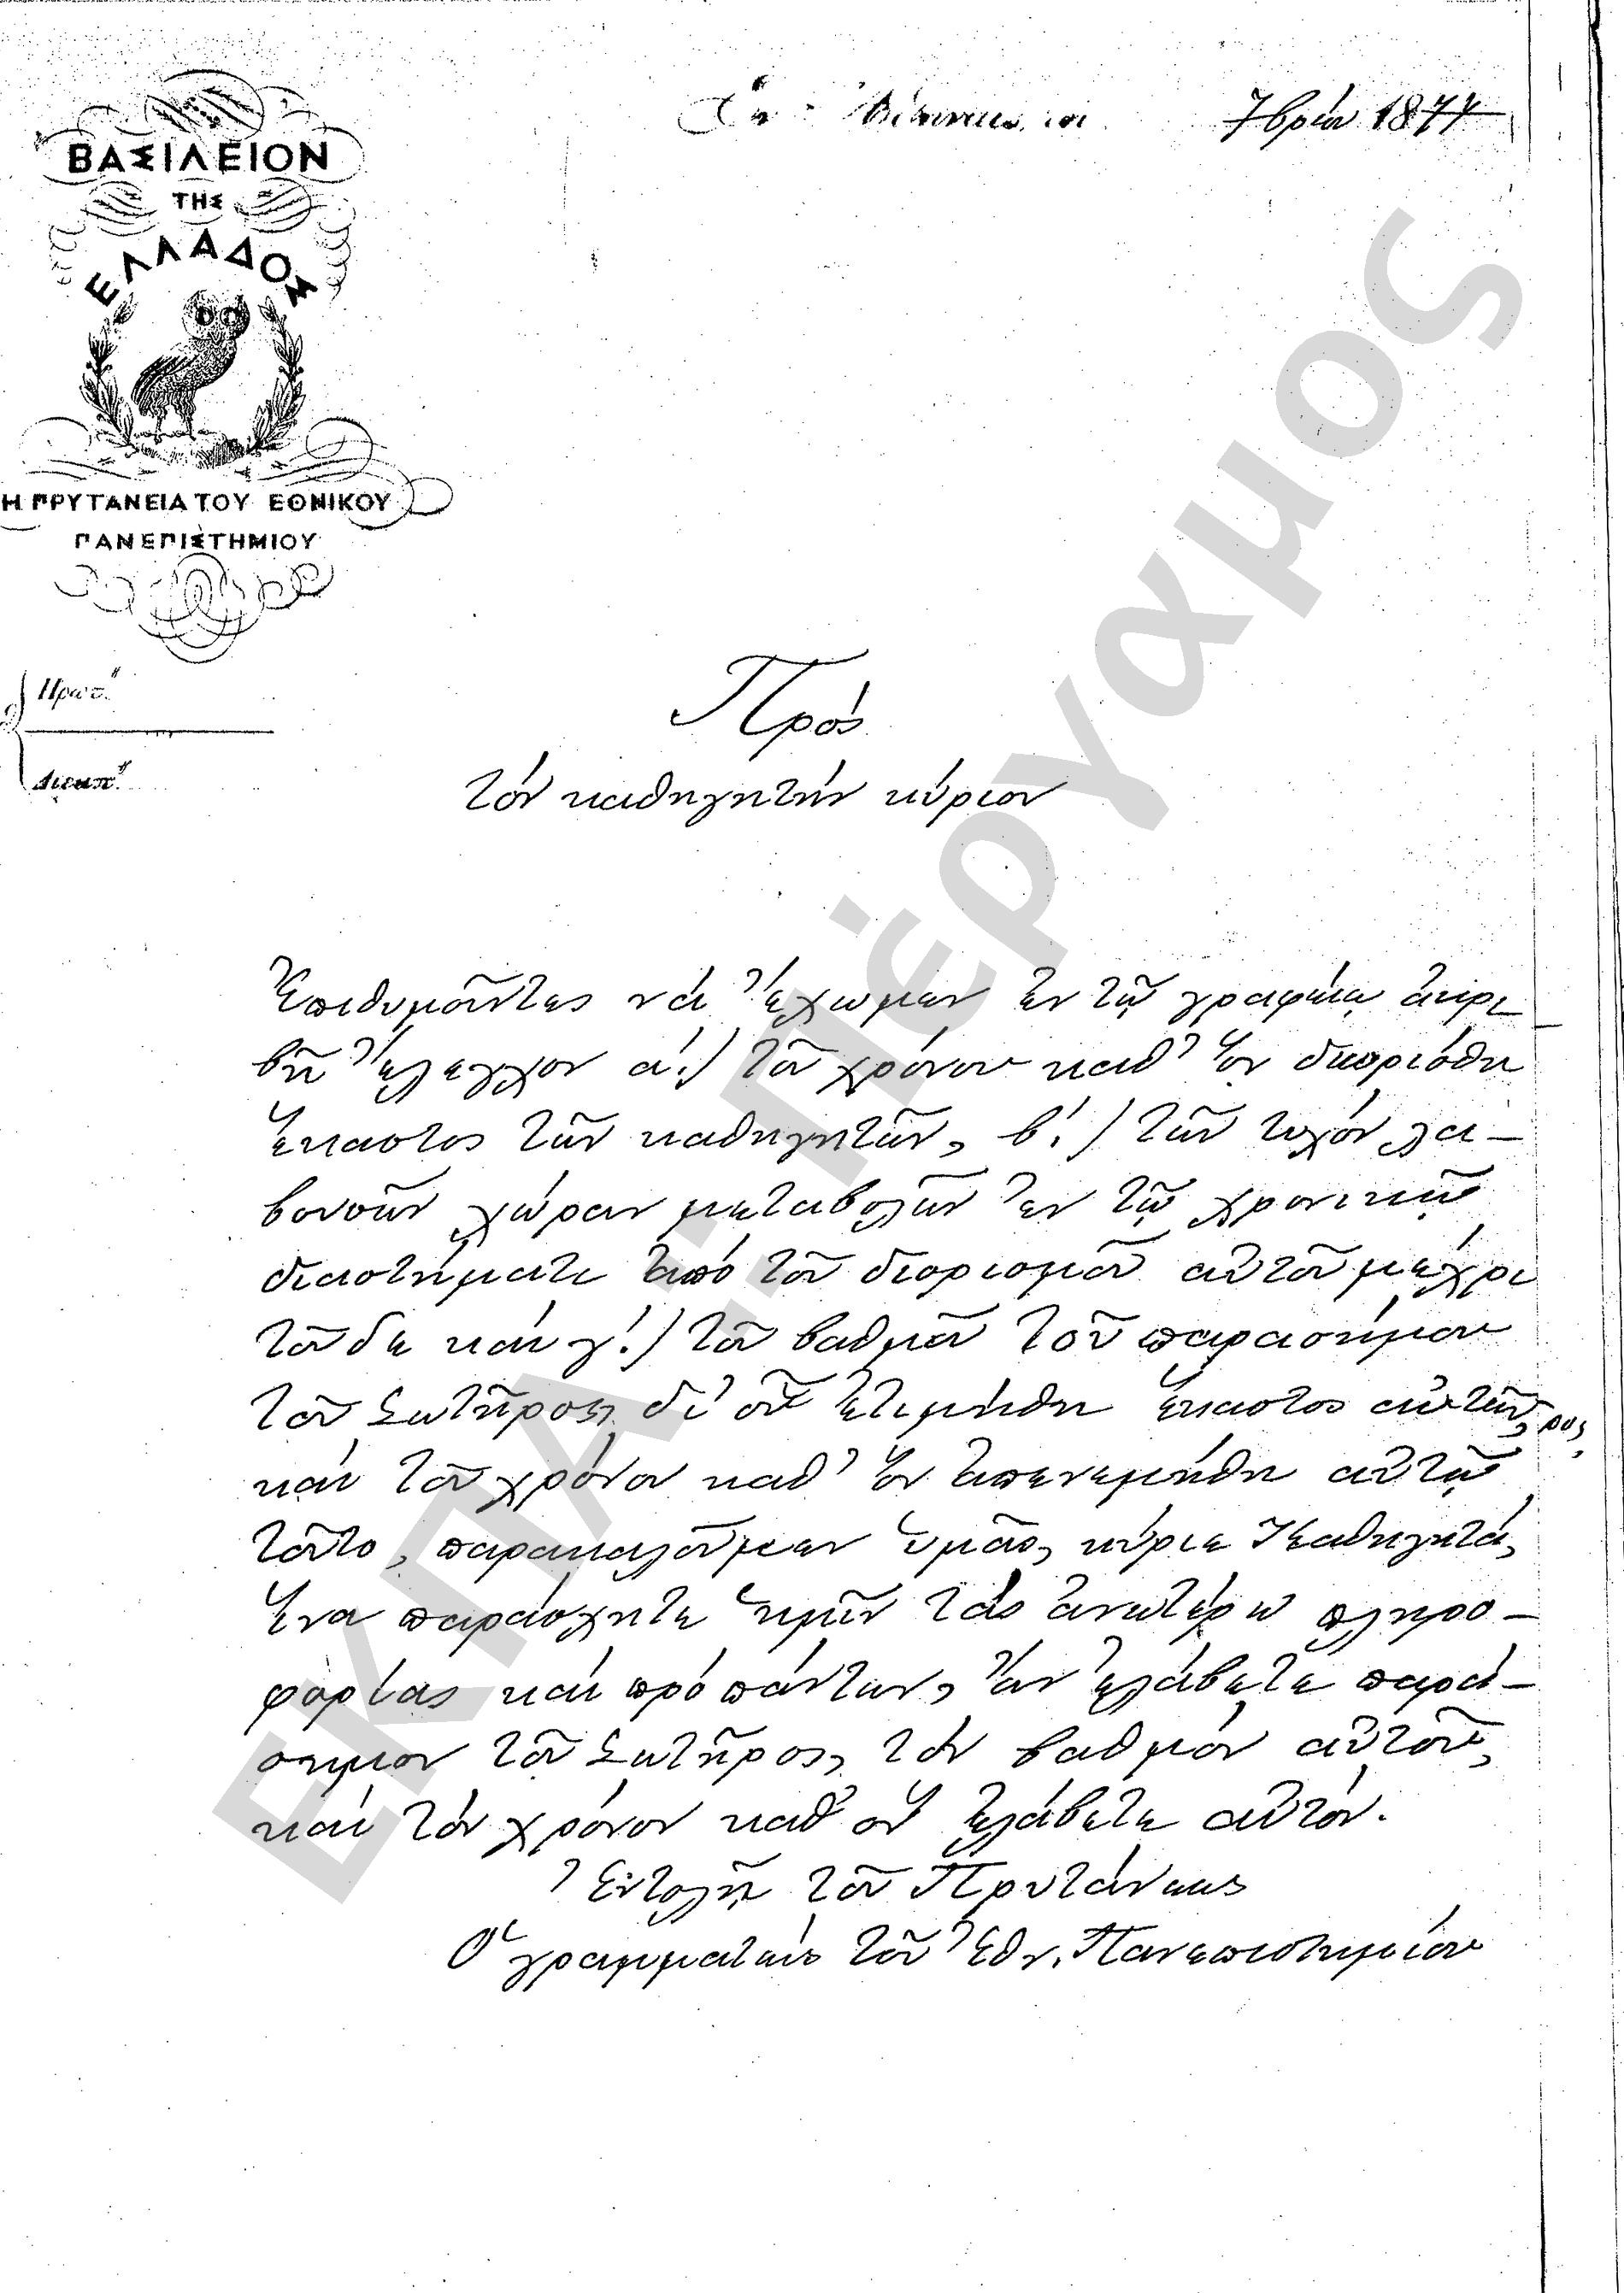 Ἐν Ἀθήναις τῇ 7βρίου 1877
ΒΑΣΙΛΕΙΟΝ
ΤΗΣ
ΕΛΛΑΔΟΣ
Η ΠΡΥΤΑΝΕΙΑ ΤΟΥ ΕΘΝΙΚΟΥ
ΠΑΝΕΠΙΣΤΗΜΙΟΥ
Πρωτ.
Διεκπ.
Πρός
τόν καθηγητήν κύριον
Ἐπιθυμοῦντες νά ἔχωμεν ἐν τῷ γραφείῳ ἀκρι
βῆ ἔλεγχον α΄.) τοῦ χρόνου καθ' ὅν διωρίσθη
ἕκαστος τῶν καθηγητῶν, β΄.) τῶν τυχόν λα–
βουσῶν χώραν μεταβολῶν ἐν τῷ χρονικῷ
διαστήματι ἀπό τοῦ διορισμοῦ αὐτοῦ μέχρι
τοῦδε καί γ΄.) τοῦ βαθμοῦ τοῦ παρασήμου
τοῦ Σωτῆρος, δι' οὗ ἐτιμήθη ἕκαστος αὐτῶν,
καί τοῦ χρόνου καθ' ὅν ἀπενεμήθη αὐτῷ
τοῦτο, παρακαλοῦμεν ὑμᾶς, κύριε Καθηγητά,
ἵνα παράσχητε ἡμῖν τάς ἀνωτέρω πληρο–
φορίας καί πρό πάντων, ἄν ἐλάβετε παρά–
σημον τοῦ Σωτῆρος, τόν βαθμόν αὐτοῦ,
καί τόν χρόνον καθ' ὅν ἐλάβετε αὐτόν.
Ἐντολῇ τοῦ Πρυτάνεως
Ὁ γραμματεύς τοῦ Ἐθν. Πανεπιστημίου
ΕΚΠΑ-Πέργαμος